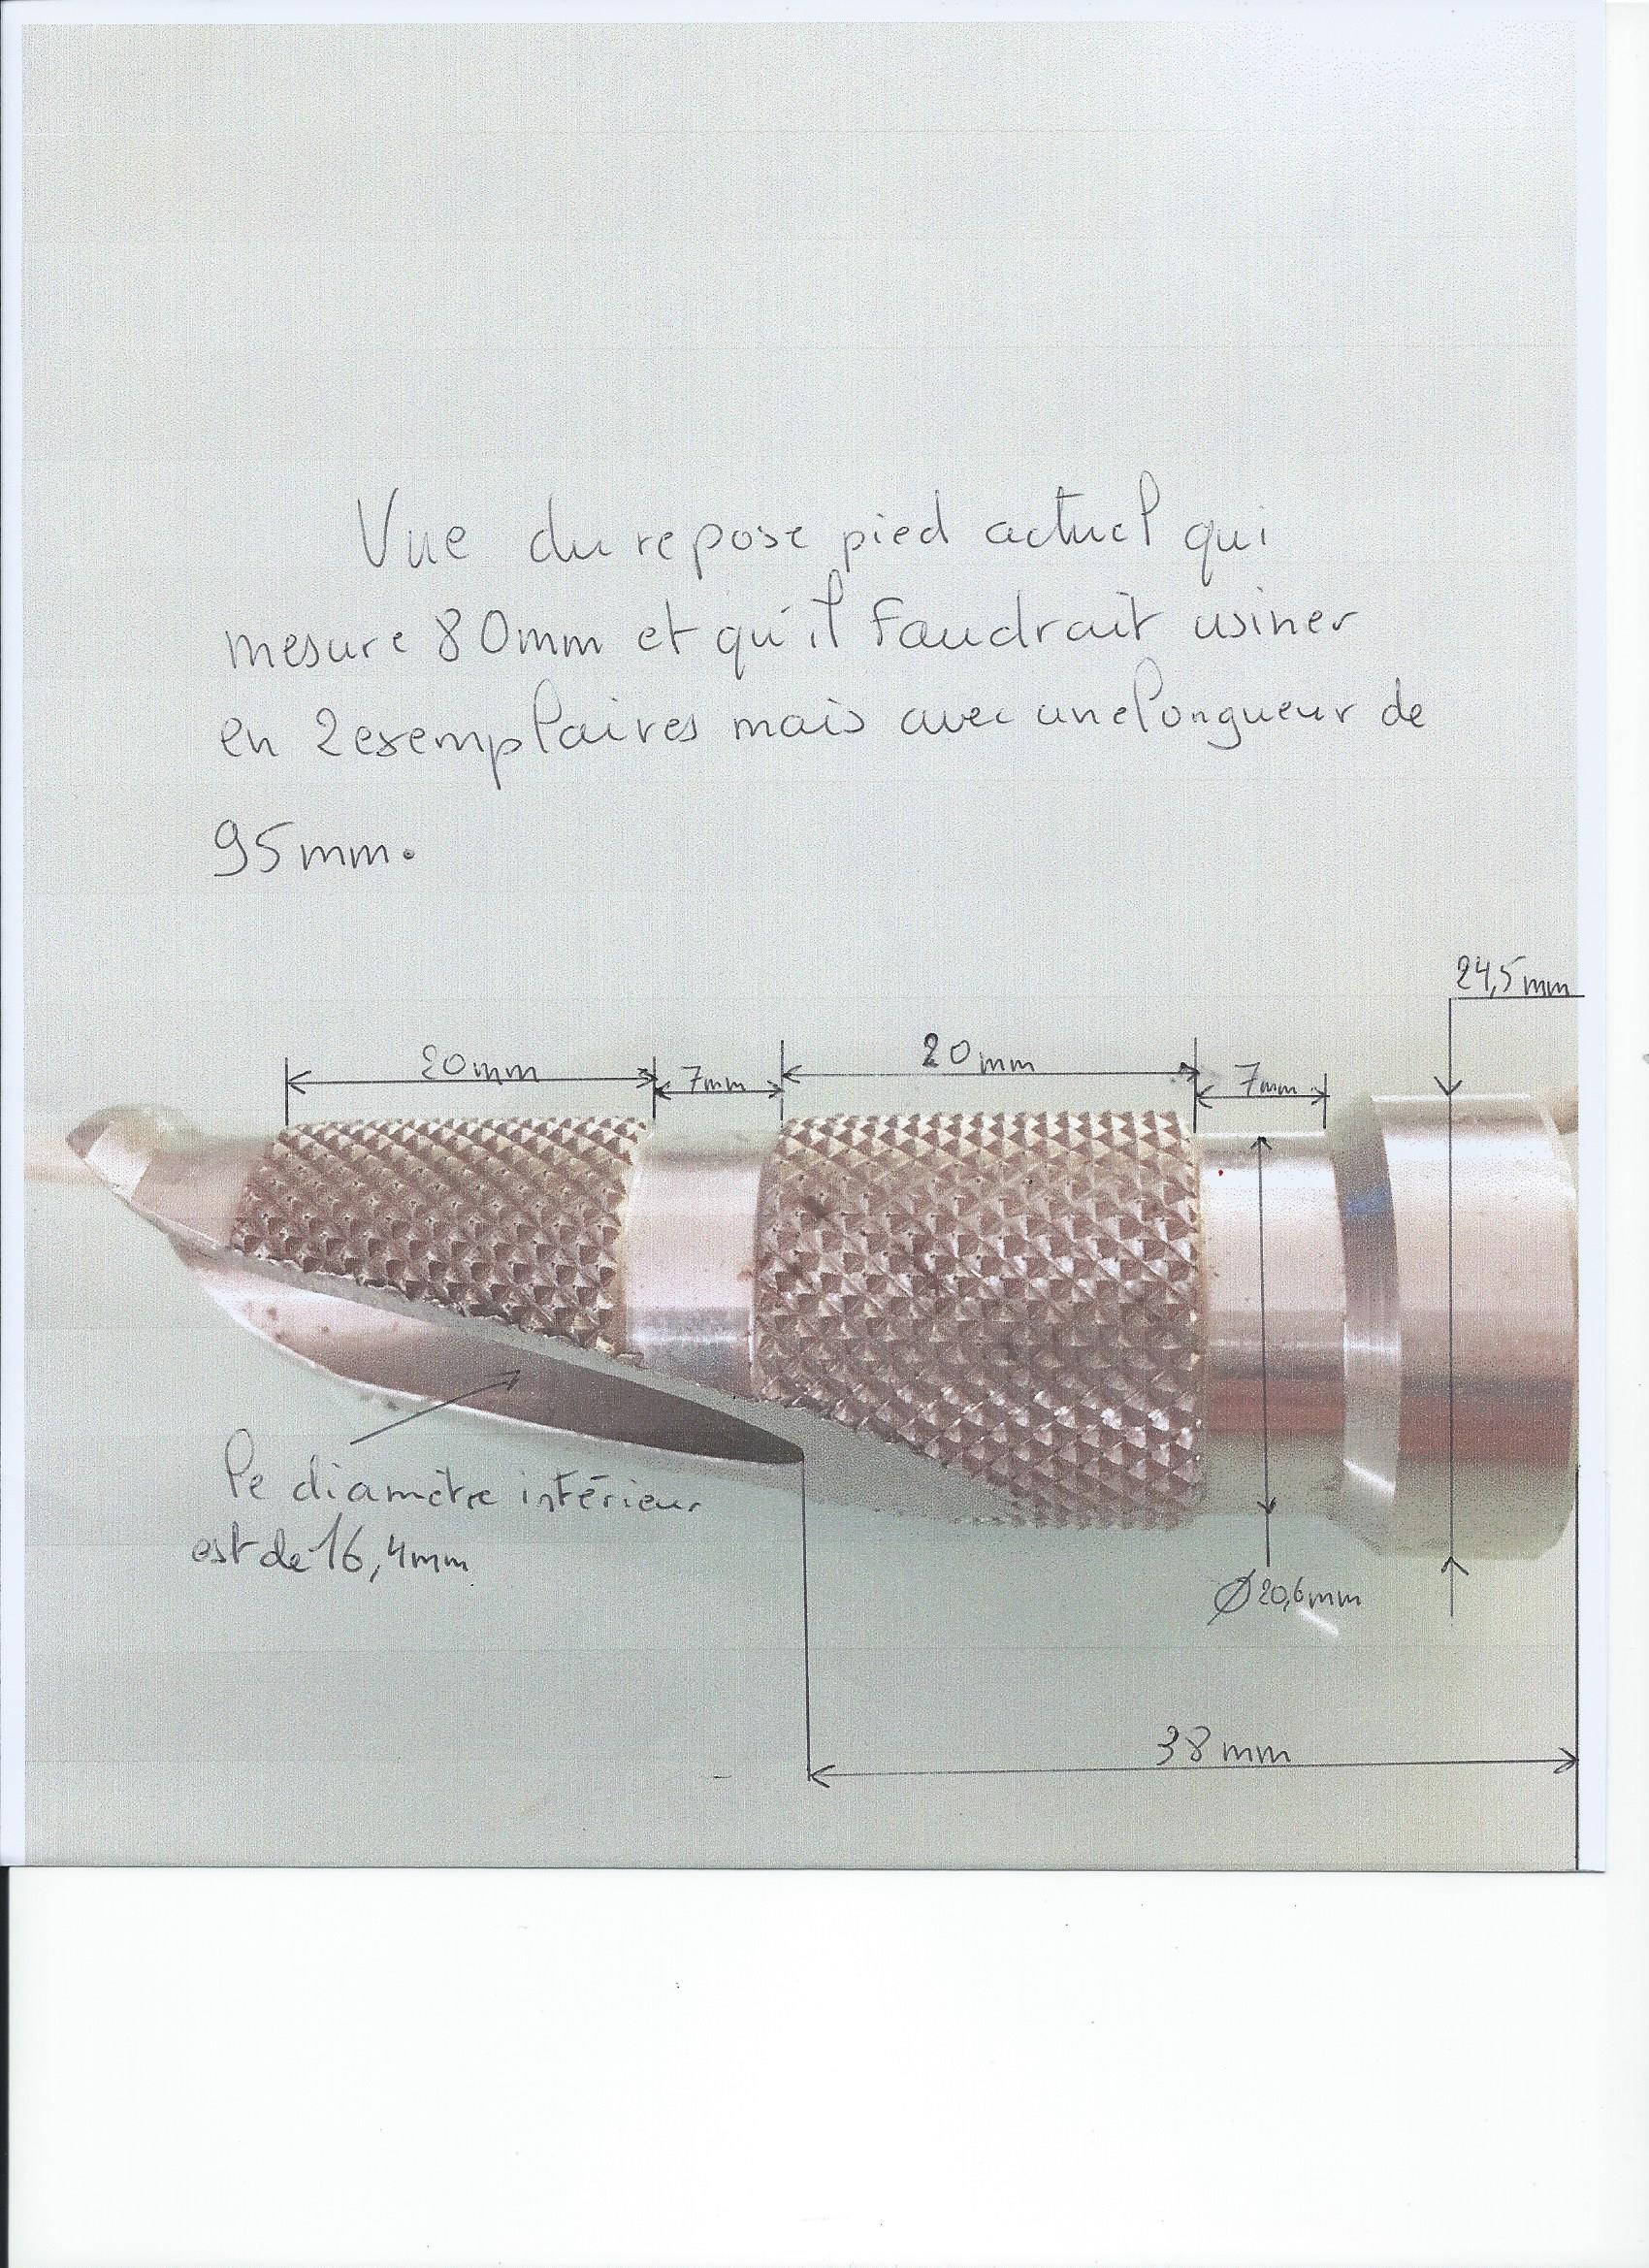 Vue du repose pied actuel qui
mesure 80mm et qu'il faudrait usiner
en 2 exemplaires mais avec une longueur de
95mm.
24,5mm
20mm
7mm
20mm
7mm
le diamètre intérieur
est de 16,4mm
Ø20,6mm
38mm